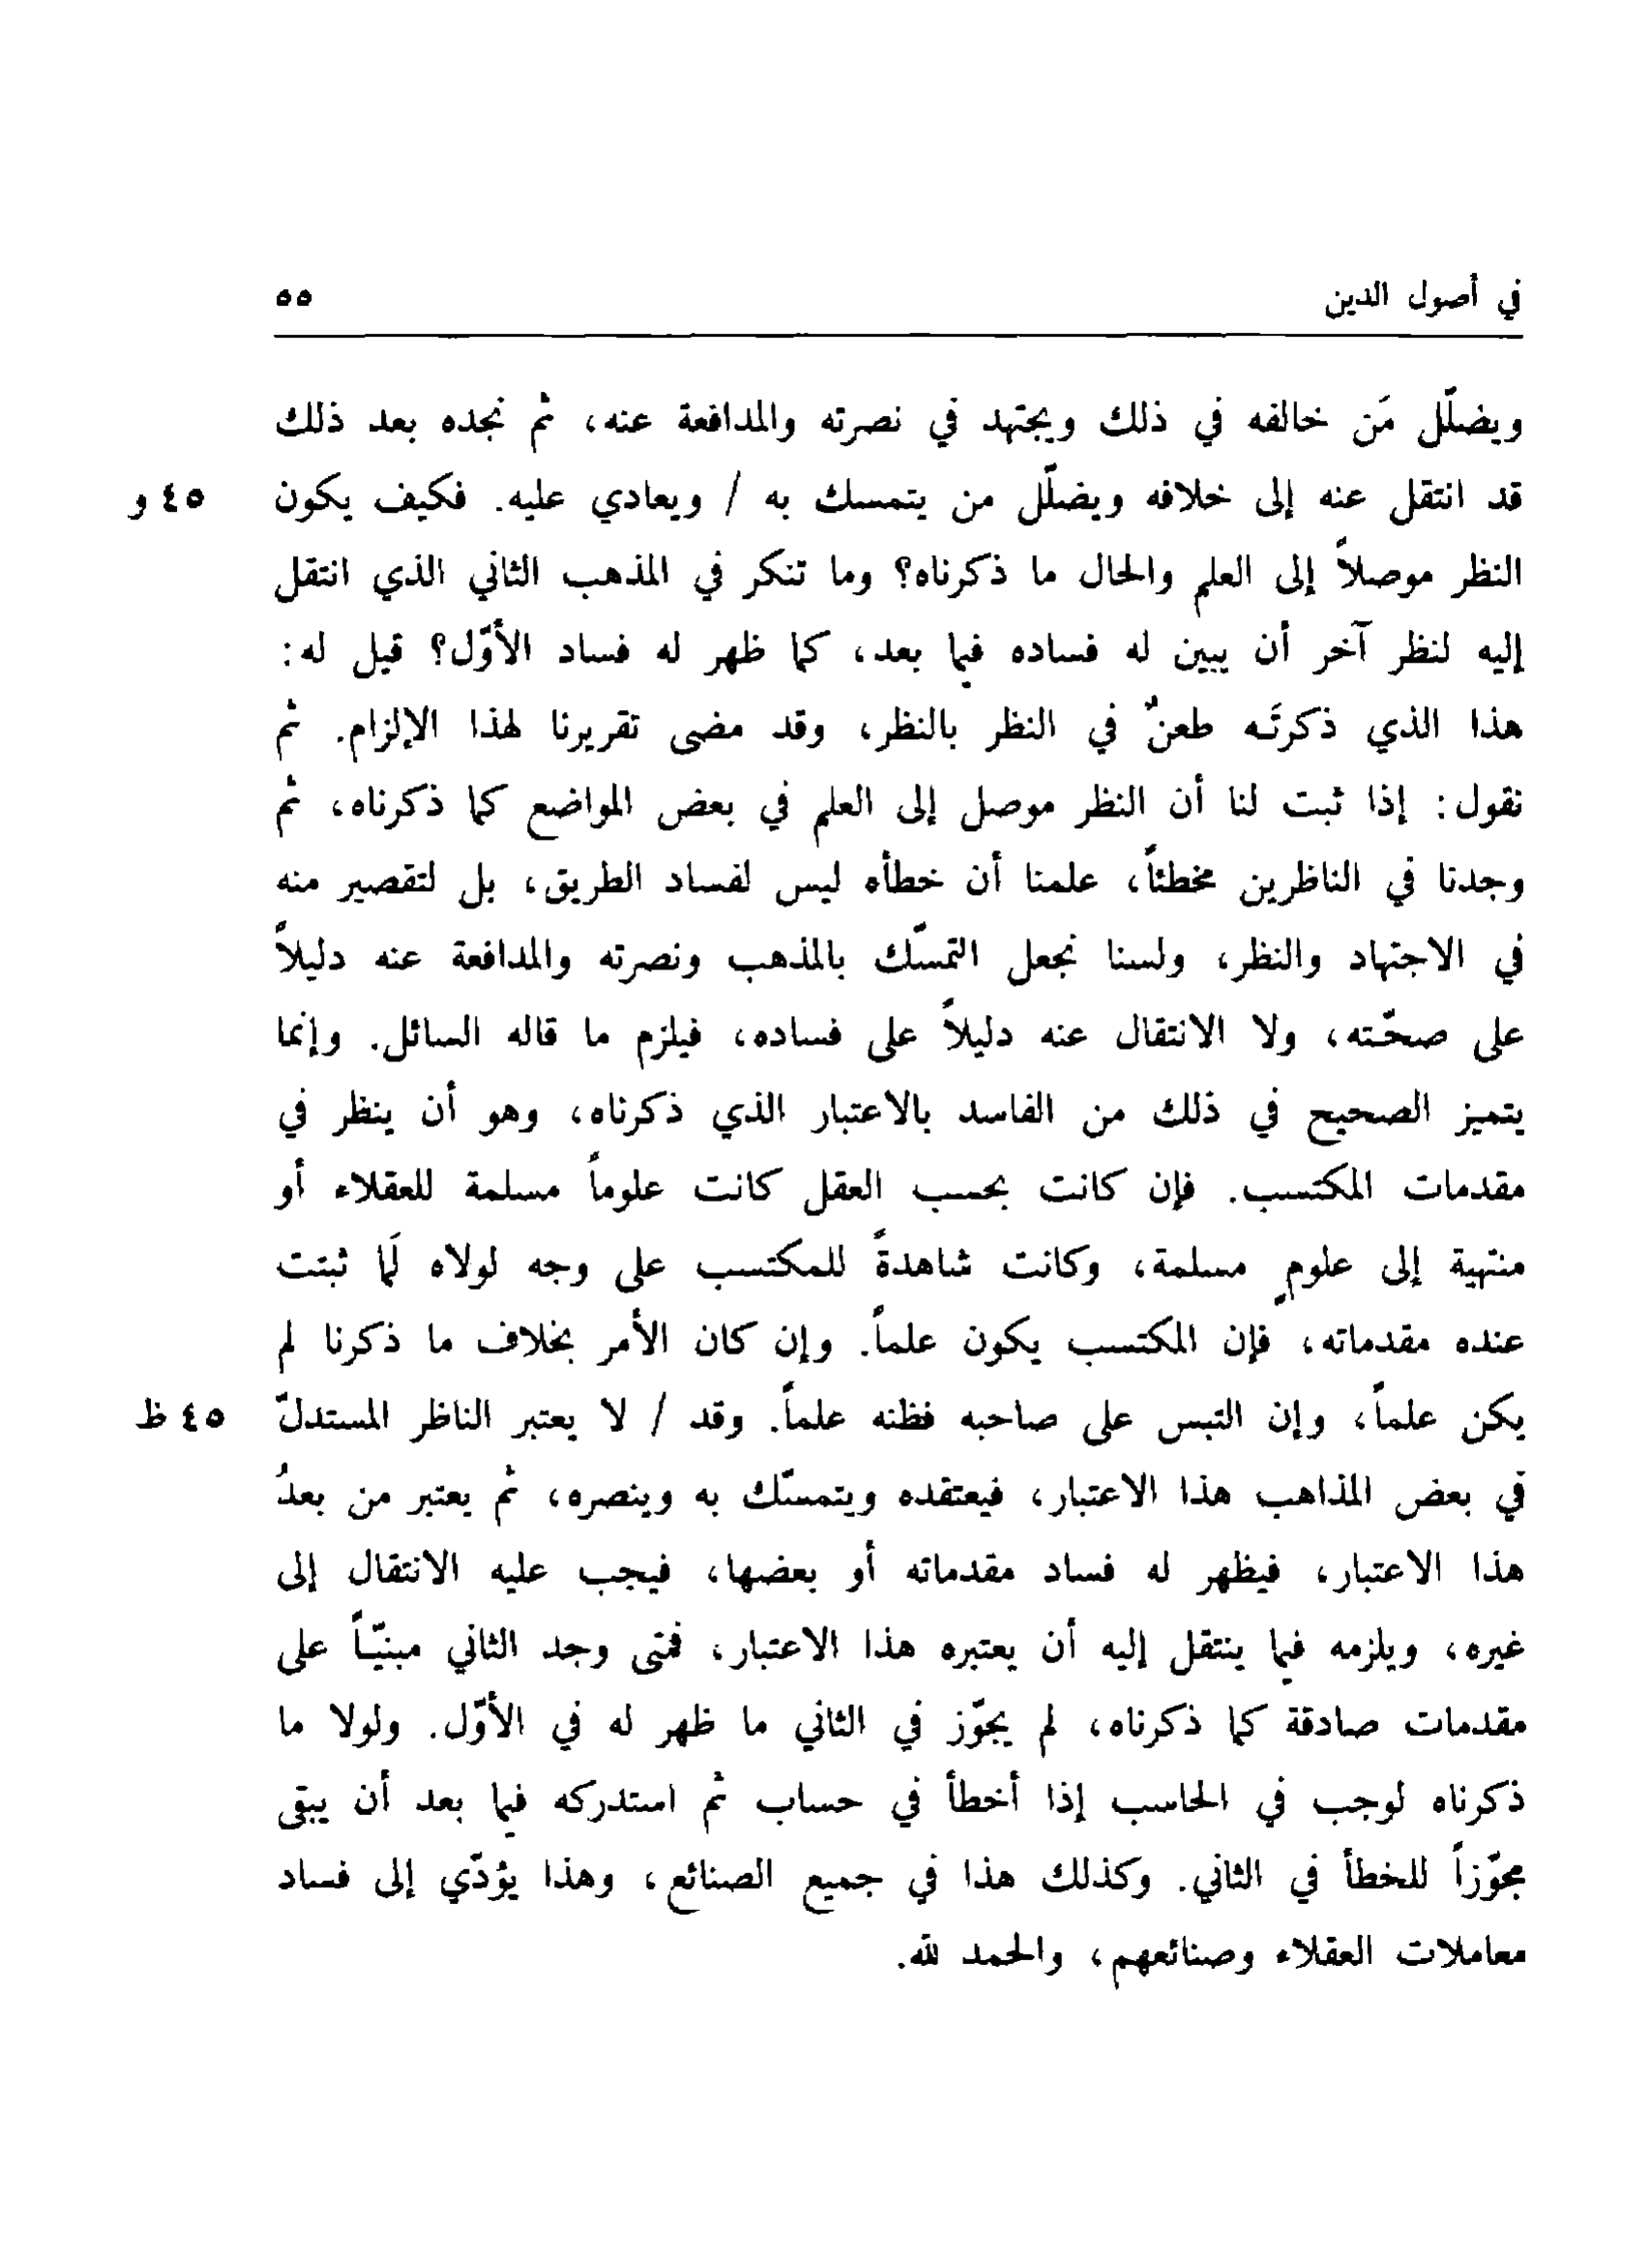 في أصول الدين ٥٥
ويضلّل مَن خالفه في ذلك ويجتهد في نصرته والمدافعة عنه، ثم نجده بعد ذلك
قد انتقل عنه إلى خلافه ويضلّل من يتمسك به / ويعادي عليه. فكيف يكون ٤٥ و
النظر موصلاً إلى العلم والحال ما ذكرناه؟ وما تنكر في المذهب الثاني الذي انتقل
إليه لنظر آخر أن يبين له فساده فيما بعد، كما ظهر له فساد الأوّل؟ قيل له:
هذا الذي ذكرتَه طعنٌ في النظر بالنظر، وقد مضى تقريرنا لهذا الإلزام. ثم
نقول: إذا ثبت لنا أن النظر موصل إلى العلم في بعض المواضع كما ذكرناه، ثم
وجدنا في الناظرين مخطئاً، علمنا أن خطأه ليس لفساد الطريق، بل لتقصير منه
في الاجتهاد والنظر، ولسنا نجعل التمسّك بالمذهب ونصرته والمدافعة عنه دليلاً
على صحّته، ولا الانتقال عنه دليلاً على فساده، فيلزم ما قاله السائل. وإنما
يتميز الصحيح في ذلك من الفاسد بالاعتبار الذي ذكرناه، وهو أن ينظر في
مقدمات المكتسب. فإن كانت بحسب العقل كانت علوماً مسلمة للعقلاء أو
منتهية إلى علومٍ مسلمة، وكانت شاهدةً للمكتسب على وجه لولاه لَما ثبتت
عنده مقدماته، فإن المكتسب يكون علماً. وإن كان الأمر بخلاف ما ذكرنا لم
يكن علماً، وإن التبس على صاحبه فظنه علماً. وقد / لا يعتبر الناظر المستدلّ ٤٥ ظ
في بعض المذاهب هذا الاعتبار، فيعتقده ويتمسّك به وينصره، ثم يعتبر من بعدُ
هذا الاعتبار، فيظهر له فساد مقدماته أو بعضها، فيجب عليه الانتقال إلى
غيره، ويلزمه فيما ينتقل إليه أن يعتبره هذا الاعتبار، فمتى وجد الثاني مبنيّاً على
مقدمات صادقة كما ذكرناه، لم يجوّز في الثاني ما ظهر له في الأوّل. ولولا ما
ذكرناه لوجب في الحاسب إذا أخطأ في حساب ثم استدركه فيما بعد أن يبقى
مجوّزاً للخطأ في الثاني. وكذلك هذا في جميع الصنائع، وهذا يؤدّي إلى فساد
معاملات العقلاء وصنائعهم، والحمد لله.